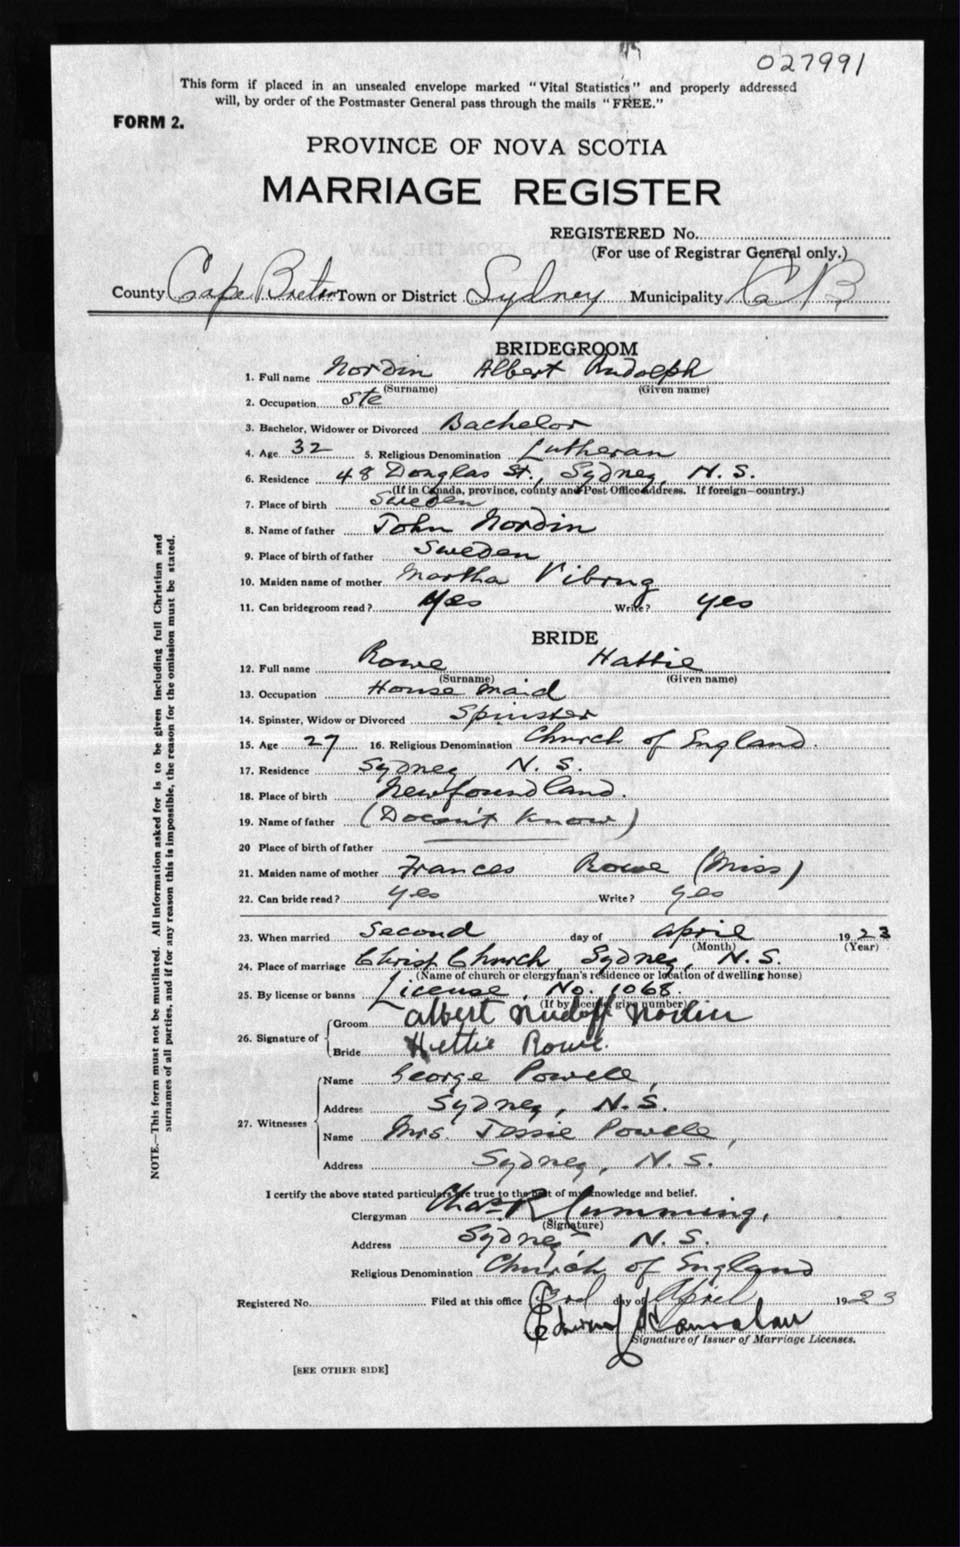 027991
This form if placed in an unsealed envelope marked "Vital Statistics" and properly addressed
will, by order of the Postmaster General pass through the mails "FREE."
FORM 2.
PROVINCE OF NOVA SCOTIA
MARRIAGE REGISTER
REGISTERED No.
(For use of Registrar General only.)
County Cape Breton Town or District Sydney Municipality C B
BRIDEGROOM
1. Full name Nordin Albert Rudolph
(Surname) (Given name)
2. Occupation
3. Bachelor, Widower or Divorced Bachelor
4. Age 32 5. Religious Denomination Lutheran
6. Residence 48 Douglas St., Sydney, N. S.
(If in Canada, province, county and Post Office address. If foreign—country.)
7. Place of birth Sweden
8. Name of father John Nordin
9. Place of birth of father Sweden
10. Maiden name of mother Martha
11. Can bridegroom read? Yes Write? yes
BRIDE
12. Full name Rowe Hattie
(Surname) (Given name)
13. Occupation House maid
14. Spinster, Widow or Divorced Spinster
15. Age 27 16. Religious Denomination Church of England.
17. Residence Sydney N. S.
18. Place of birth Newfoundland.
19. Name of father (Doesn't know)
20 Place of birth of father
21. Maiden name of mother Frances Rowe (Miss)
22. Can bride read? yes Write? yes
23. When married Second day of April 1923
(Month) (Year)
24. Place of marriage Christ Church, Sydney, N. S.
(Name of church or clergyman's residence or location of dwelling house)
25. By license or banns License. No. 1068.
(If by license give number)
26. Signature of Groom Albert Nordin
Bride Hettie Rowe.
27. Witnesses
Name George Powell,
Address Sydney, N. S.
Name Mrs. Jessie Powell,
Address Sydney, N. S.
I certify the above stated particulars are true to the best of my knowledge and belief.
Clergyman Chas R Cumming,
(Signature)
Address Sydney N. S.
Religious Denomination Church of England
Registered No. Filed at this office 3rd day of April 1923
Signature of Issuer of Marriage Licenses.
[SEE OTHER SIDE]
NOTE.—This form must not be mutilated. All information asked for is to be given including full Christian and
surnames of all parties, and if for any reason this is impossible, the reason for the omission must be stated.